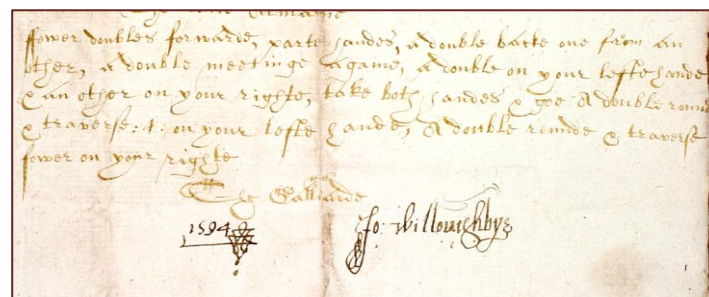 The new Almaine
ffower doubles forwarde, parte handes, a double backe one from an
other, a double meetinge againe, a double on your lefte hande
& an other on your righte, take both handes & goe A double round
& traverse: 4: on your lefte hande, A double rounde & traverse
fower on your righte
The Galliarde
1594 Jo: Willoughbye